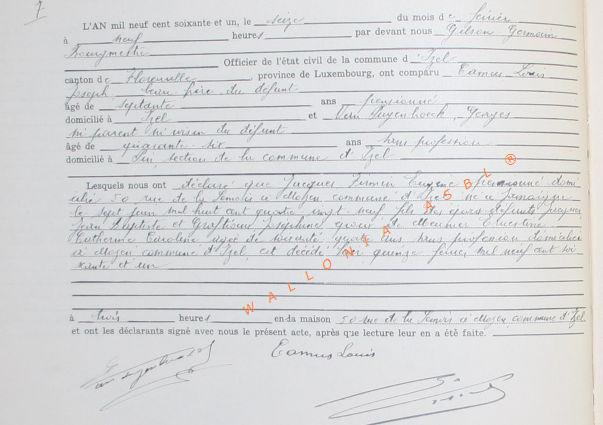 L'AN mil neuf cent soixante et un, le seize du mois de février
à neuf heures par devant nous Gilson Germain
Bourgmestre Officier de l'état civil de la commune d'Izel
canton de Florenville, province de Luxembourg, ont comparu Eamus Louis
Joseph beau frère du défunt
âgé de septante ans pensionné
domicilié à Izel et Van Georges
ni parent ni voisin du défunt
âgé de quarante six ans sans profession
domicilié à section de la commune d'Izel
Lesquels nous ont déclaré que Jacques Firmin Eugène pensionné domi
cilié 50 rue de la Semois à Moyen commune d'Izel né à Jamoigne
le sept juin mil huit cent quatre vingt neuf fils des époux défunts Jacques
Jean Baptiste et Joséphine époux de Meunier Ernestine
Catherine Caroline âgée de soixante quatre ans sans profession domiciliée
à Moyen commune d'Izel, est décédé hier quinze février mil neuf cent soi
xante et un
à trois heures en da maison 50 rue de la Semois à Moyen commune d'Izel
et ont les déclarants signé avec nous le présent acte, après que lecture leur en a été faite.
Eamus Louis
WALLONIA ASBL ®